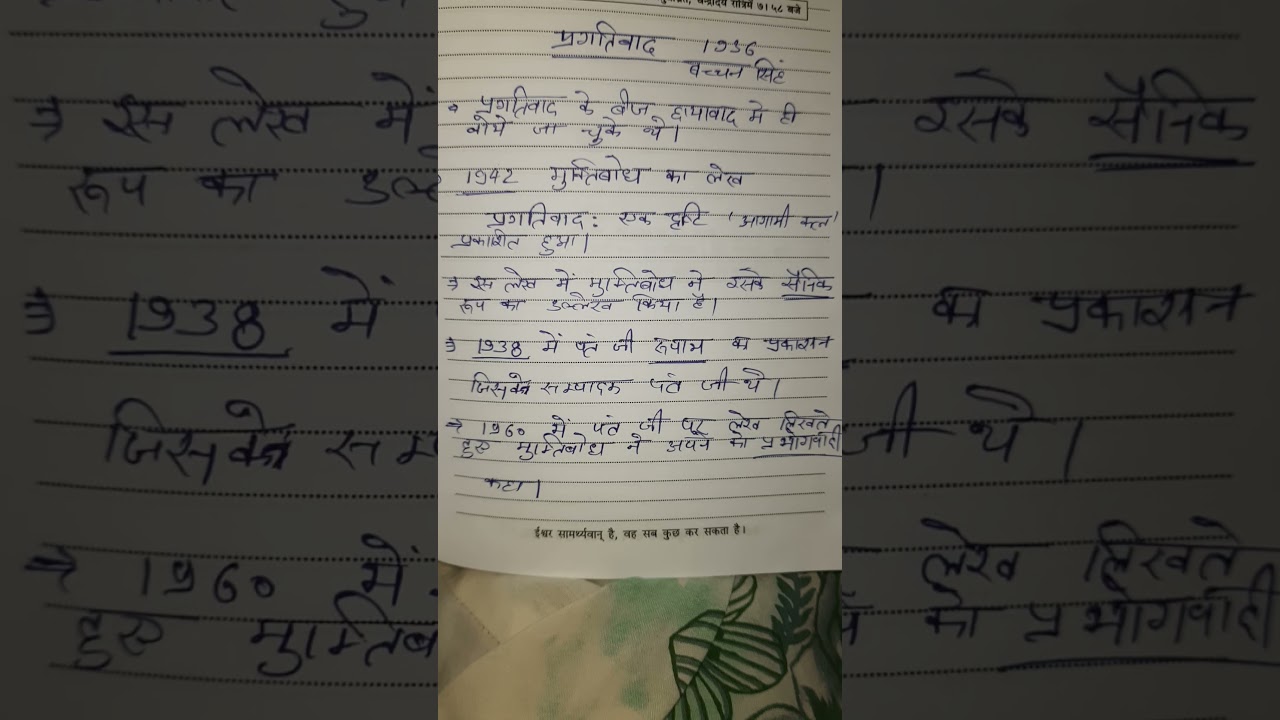 चन्द्रोदय रात्रिमें ७।५८ बजे
प्रगतिवाद 1936
बच्चन सिंह
प्रगतिवाद के बीज छायावाद मे ही
बोये जा चुके थे।
1942 मुक्तिबोध का लेख
प्रगतिवाद: एक दृष्टि 'आगामी कल'
प्रकाशित हुआ।
→ इस लेख में मुक्तिबोध ने इसके सैनिक
रूप का उल्लेख किया है।
→ 1938 में पंत जी रूपाभ का प्रकाशन
जिसके सम्पादक पंत जी थे।
→ 1960 में पंत जी पर लेख लिखते
हुए मुक्तिबोध ने अपने को
कहा।
ईश्वर सामर्थ्यवान् है, वह सब कुछ कर सकता है।